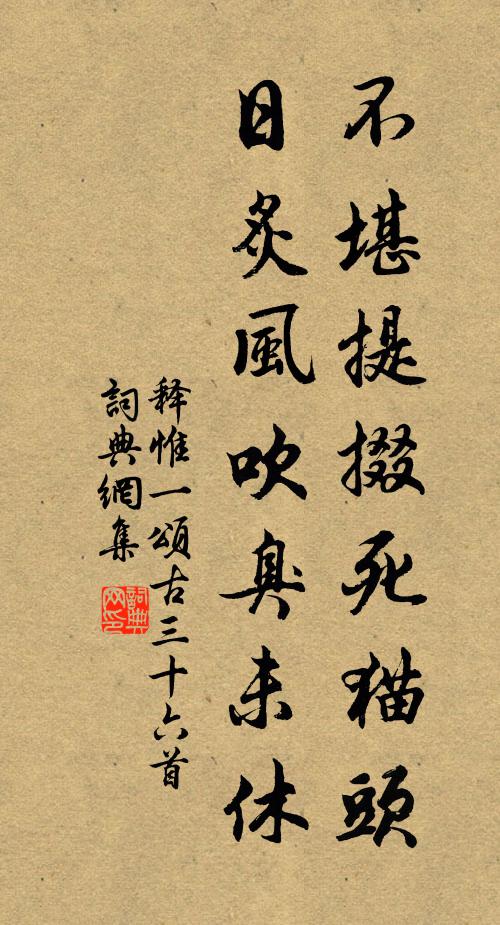 不堪提掇死猫頭
日炙風吹臭未休
释惟一頌古三十六首
詞典網集
詞典
网印